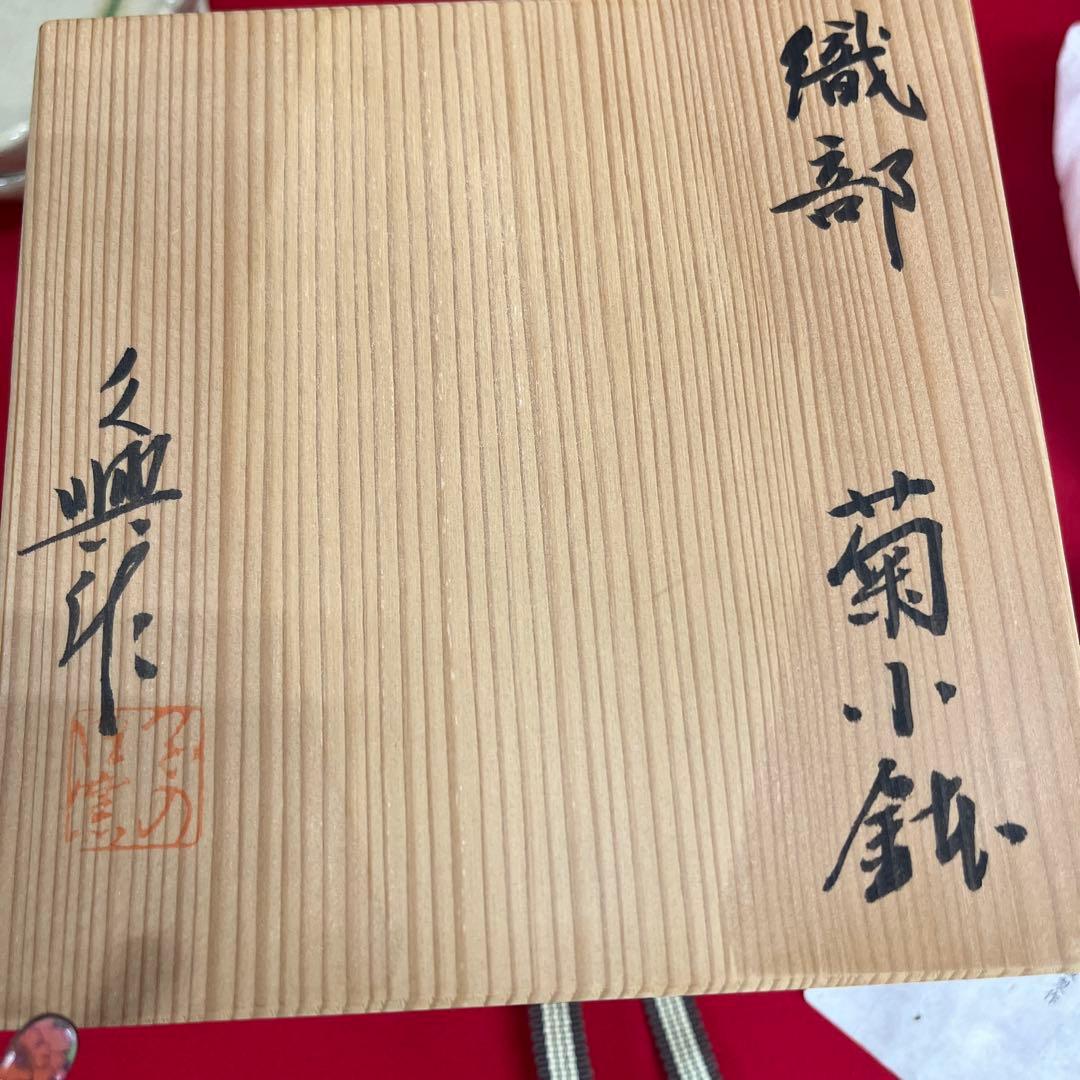 織部
菊小鉢
久興作